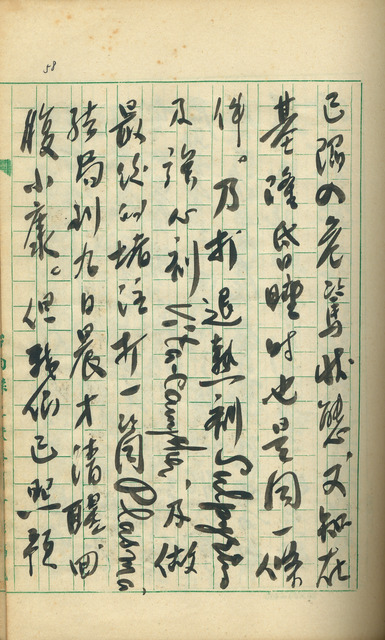 58
已陷入危篤狀態，又知在
基隆昏睡時也是同一條
件。乃打退熱劑Sulpyrin
及強心劑Vita-Campher，及做
最後的堵注打一筒Plasma，
結局到九日晨才清醒回
復小康。但我倆已照預